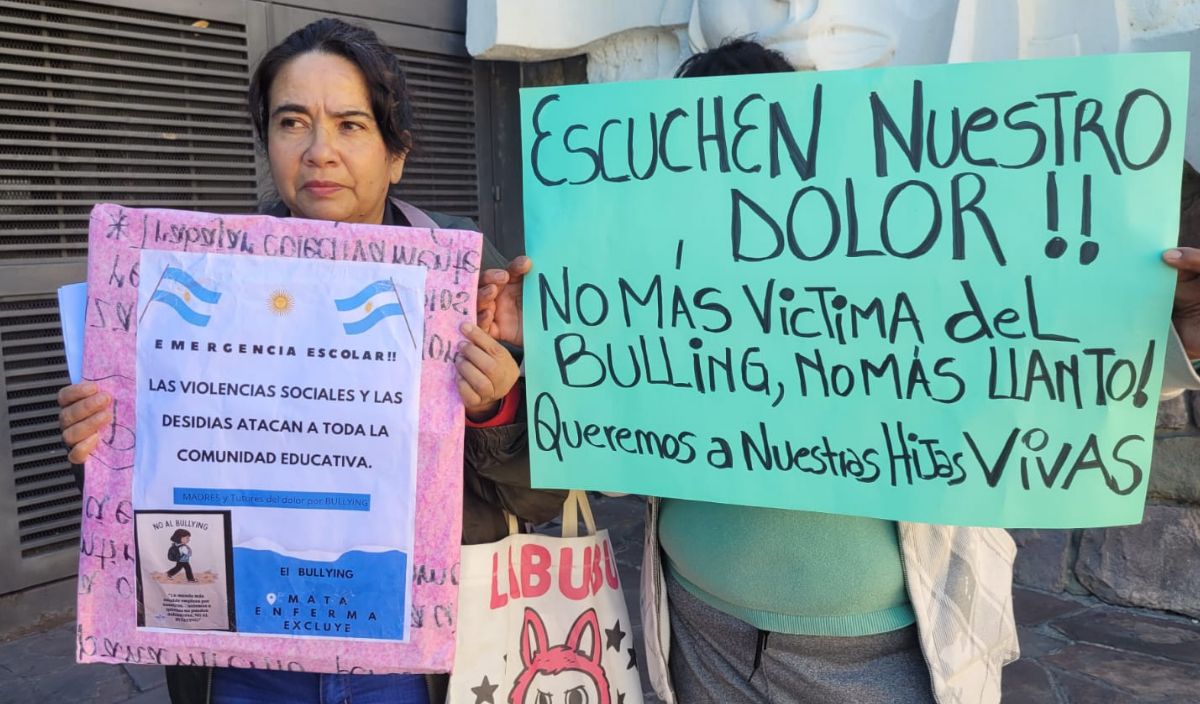 EMERGENCIA ESCOLAR!!
LAS VIOLENCIAS SOCIALES Y LAS
DESIDIAS ATACAN A TODA LA
COMUNIDAD EDUCATIVA.
MADRES y Tutores del dolor por BULLYING
NO AL BULLYING
El BULLYING
MATA
ENFERMA
EXCLUYE
ESCUCHEN NUESTRO
DOLOR!!
NO MÁS VICTIMA del
BULLING, NO MÁS LLANTO!
Queremos a NuestRAS HIJAS VIVAS
LABUBU